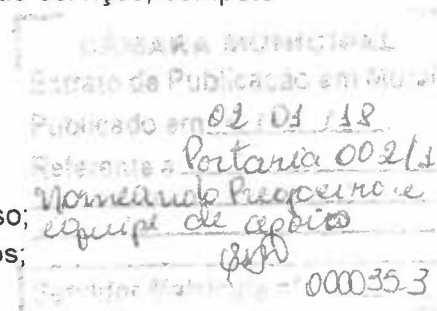 CÂMARA MUNICIPAL
Extrato de Publicação em Mural
Publicado em 02 / 01 / 18
Referente a Portaria 002/1
Nomeando Pregoeiro e
so; equipe de apoio
os;
Servidor Matrícula nº
0000353